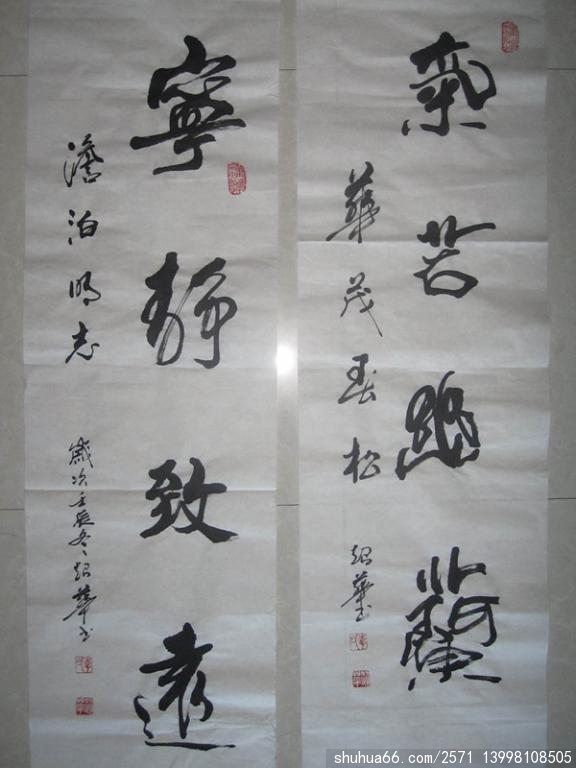 氣若幽蘭
華茂春松
紹華書
寧靜致遠
澹泊明志
歲次壬辰冬紹華書
shuhua66.com/2571 13998108505